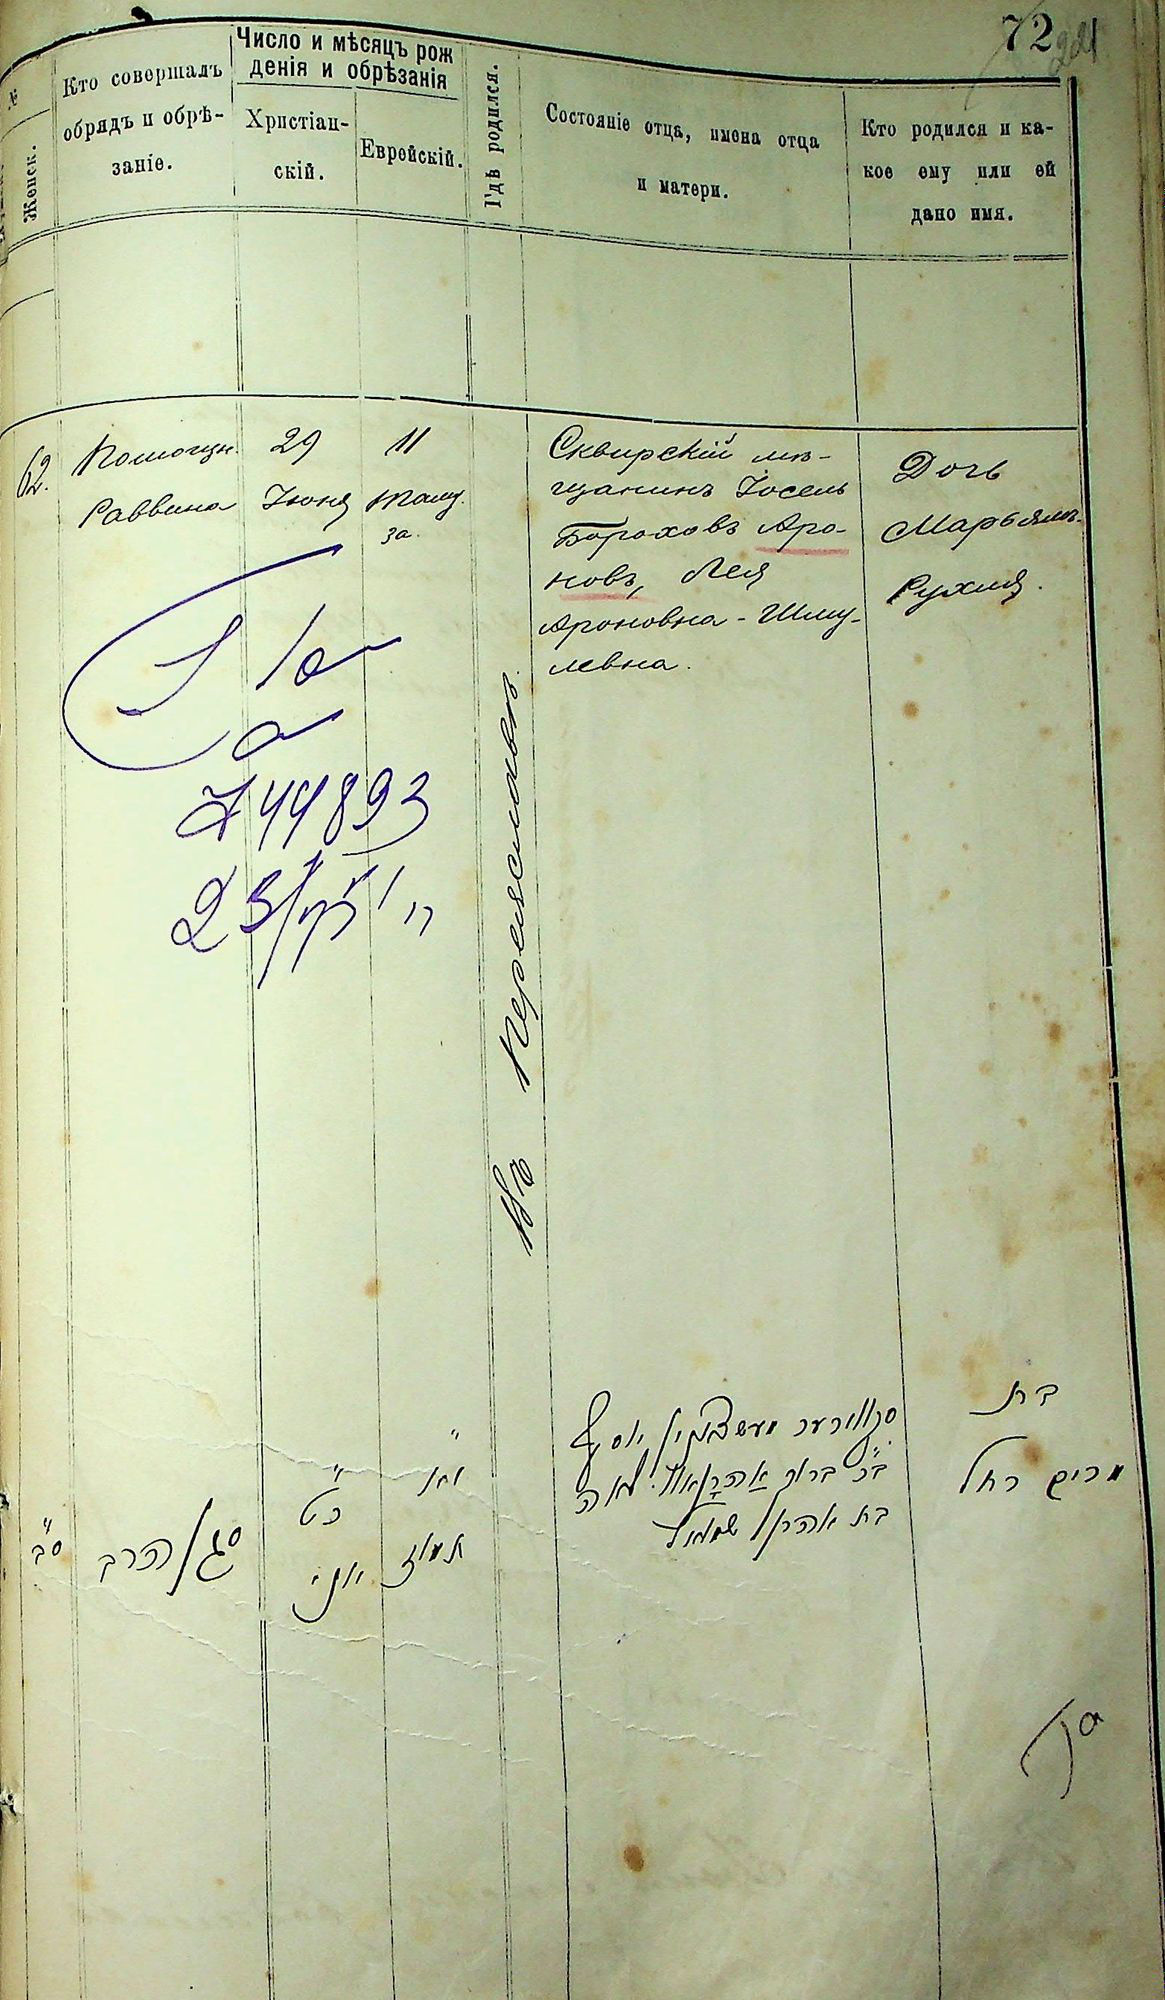 72
№
Женск.
Кто совершалъ
обрядъ и обрѣ-
заніе.
Число и мѣсяцъ рож
денія и обрѣзанія
Христіан-
скій.
Еврейскій.
Гдѣ родился.
Состояніе отца, имена отца
и матери.
Кто родился и ка-
кое ему или ей
дано имя.
62.
Помощн.
Раввина
29
Іюня
11
Таму
за.
Въ Переяславѣ.
Сквирскій мѣ-
щанинъ Іосель
Бороховъ Аро-
новъ, Лея
Ароновна-Шму-
левна.
Дочь
Марьямъ-
Рухля.
744893
ס״ב
סגן הרב
כ״ט
יוני
תמוז
סקווירער יוסף
ב״ר ברוך לאה
בת אהרן שמואל
בת
מרים רחל